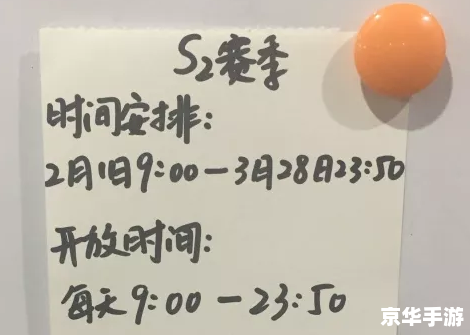 S2赛季
时间安排:
2月1日9:00-3月28日23:50
开放时间:
每天9:00-23:50
京华手游